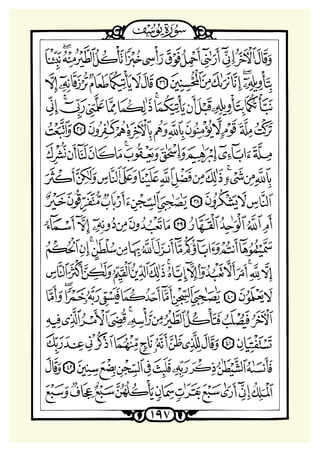 سورة يوسف
وَقَالَ ٱلْأَخَرُ إِنِّيَ أَرَىٰنِيَ أَحْمِلُ فَوْقَ رَأْسِي خُبْزًا تَأْكُلُ ٱلطَّيْرُ مِنْهُ نَبِّئْنَا
بِتَأْوِيلِهِۦ إِنَّا نَرَىٰكَ مِنَ ٱلْمُحْسِنِينَ ٣٦ قَالَ لَا يَأْتِيكُمَا طَعَامٌ تُرْزَقَانِهِۦ إِلَّا
نَبَّأْتُكُمَا بِتَأْوِيلِهِۦ قَبْلَ أَن يَأْتِيَكُمَا ذَٰلِكُمَا مِمَّا عَلَّمَنِي رَبِّيَ إِنِّي
تَرَكْتُ مِلَّةَ قَوْمٍ لَّا يُؤْمِنُونَ بِٱللَّهِ وَهُم بِٱلْأَخِرَةِ هُمْ كَٰفِرُونَ ٣٧ وَٱتَّبَعْتُ
مِلَّةَ ءَابَآءِي إِبْرَٰهِيمَ وَإِسْحَٰقَ وَيَعْقُوبَ مَا كَانَ لَنَا أَن نُّشْرِكَ
بِٱللَّهِ مِن شَيْءٍ ذَٰلِكَ مِن فَضْلِ ٱللَّهِ عَلَيْنَا وَعَلَى ٱلنَّاسِ وَلَٰكِنَّ أَكْثَرَ
ٱلنَّاسِ لَا يَشْكُرُونَ ٣٨ يَٰصَٰحِبَيِ ٱلسِّجْنِ ءَأَرْبَابٌ مُّتَفَرِّقُونَ خَيْرٌ
أَمِ ٱللَّهُ ٱلْوَٰحِدُ ٱلْقَهَّارُ ٣٩ مَا تَعْبُدُونَ مِن دُونِهِۦ إِلَّا أَسْمَآءً
سَمَّيْتُمُوهَا أَنتُمْ وَءَابَآؤُكُم مَّا أَنزَلَ ٱللَّهُ بِهَا مِن سُلْطَٰنٍ إِنِ ٱلْحُكْمُ
إِلَّا لِلَّهِ أَمَرَ أَلَّا تَعْبُدُوا إِلَّا إِيَّاهُ ذَٰلِكَ ٱلدِّينُ ٱلْقَيِّمُ وَلَٰكِنَّ أَكْثَرَ ٱلنَّاسِ
لَا يَعْلَمُونَ ٤٠ يَٰصَٰحِبَيِ ٱلسِّجْنِ أَمَّا أَحَدُكُمَا فَيَسْقِي رَبَّهُۥ خَمْرًا وَأَمَّا
ٱلْأَخَرُ فَيُصْلَبُ فَتَأْكُلُ ٱلطَّيْرُ مِن رَّأْسِهِۦ قُضِيَ ٱلْأَمْرُ ٱلَّذِي فِيهِ
تَسْتَفْتِيَانِ ٤١ وَقَالَ لِلَّذِي ظَنَّ أَنَّهُۥ نَاجٍ مِّنْهُمَا ٱذْكُرْنِي عِندَ رَبِّكَ
فَأَنسَىٰهُ ٱلشَّيْطَٰنُ ذِكْرَ رَبِّهِۦ فَلَبِثَ فِي ٱلسِّجْنِ بِضْعَ سِنِينَ ٤٢ وَقَالَ
ٱلْمَلِكُ إِنِّيَ أَرَىٰ سَبْعَ بَقَرَٰتٍ سِمَانٍ يَأْكُلُهُنَّ سَبْعٌ عِجَافٌ وَسَبْعَ
١٩٧